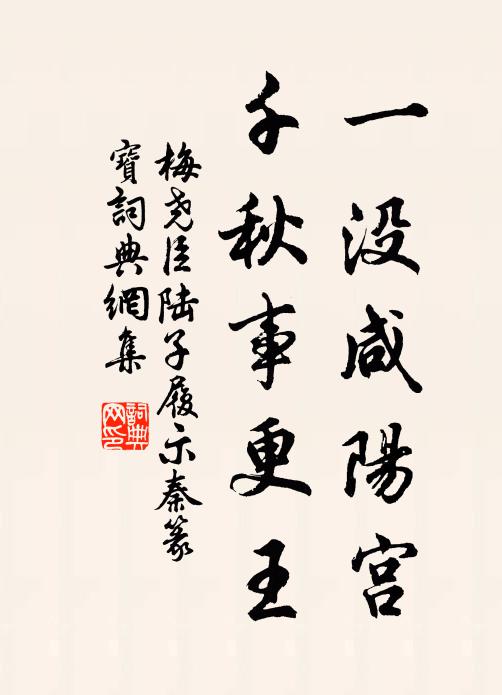 一没咸陽宫
千秋事更王
梅尧臣陆子履示秦篆
寶詞典網集
詞典网印